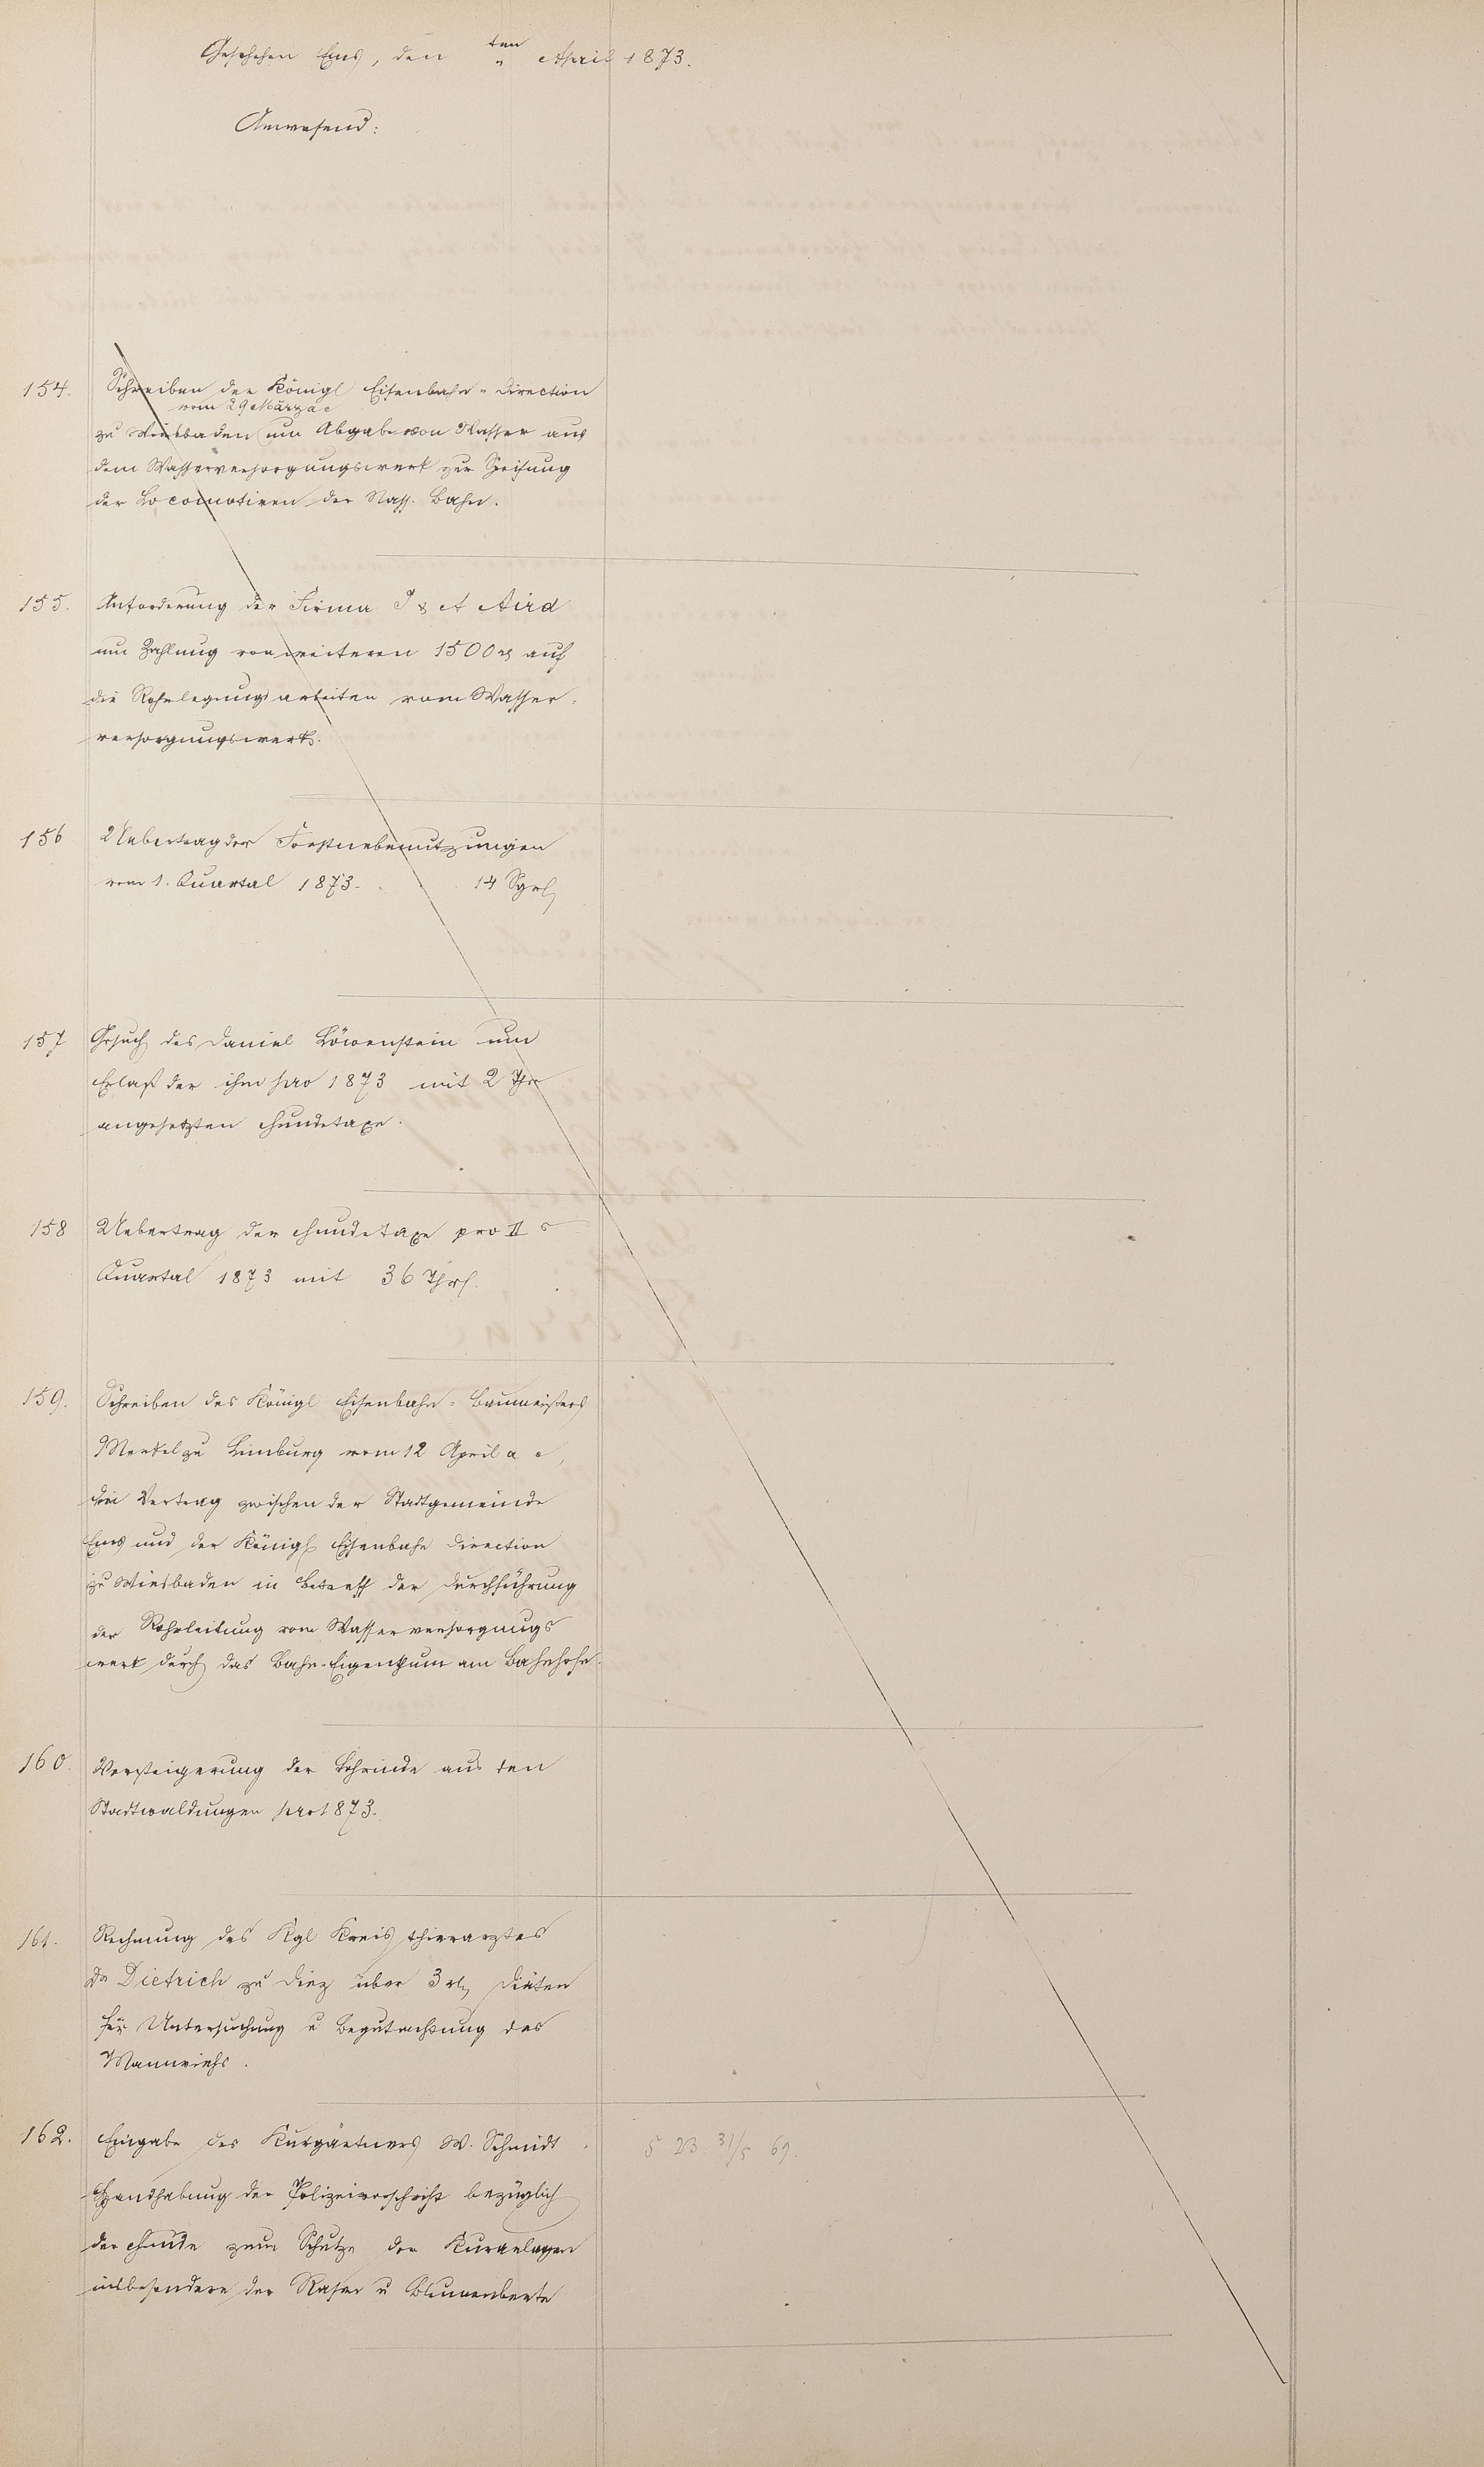 Geschehen Ems, den " ten April 1873.
Anwesend:
154. Schreiben der Königl Eisenbahn-Direction
vom 29 März a c
zu Wiesbaden um Abgabe von Wasser aus
dem Wasserversorgungswerk zur Speisung
der Locomotiven der Nass. Bahn.
155. Anforderung der Firma J & A Aird
um Zahlung von weiteren 1500 rh auf
die Rohrlegungsarbeiten vom Wasser-
versorgungswerk.
156 Uebertrag der Forstnebennutzungen
vom 1. Quartal 1873. . . 14 Sgr
157 Gesuch des Daniel Löwenstein um
Erlaß der ihm pro 1873 mit 2 Thr
angesetzten Hundetaxe.
158 Uebertrag der Hundetaxe pro II s
Quartal 1873 mit 36 Thr.
159. Schreiben des Königl Eisenbahn-Baumeisters
zu Limburg vom 12 April a c,
den Vertrag zwischen der Stadtgemeinde
Ems und der Königl Eisenbahn Direction
zu Wiesbaden in Betreff der Durchführung
der Rohrleitung vom Wasserversorgungs
werk durch das Bahn-Eigenthum am Bahnhofe.
160. Versteigerung der Lohrinde aus den
Stadtwaldungen pro 1873.
161. Rechnung des Kgl Kreisthierarztes
Dr Dietrich zu Diez über 3 rh Diäten
für Untersuchung u Begutachtung des
162. Eingabe des Kurgärtners W. Schmidt
Handhabung der Polizeivorschrift bezüglich
der Hunde zum Schutze der Kuranlagen
insbesondere der Rasen u Blumenbeete
§ 23 31/5 69.